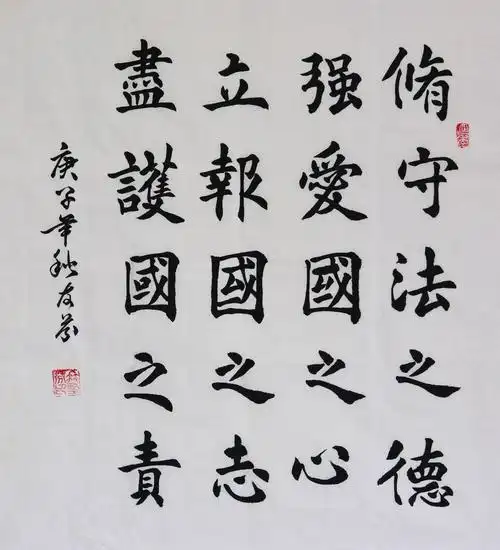 脩守法之德
强愛國之心
立報國之志
盡護國之責
庚子年秋友